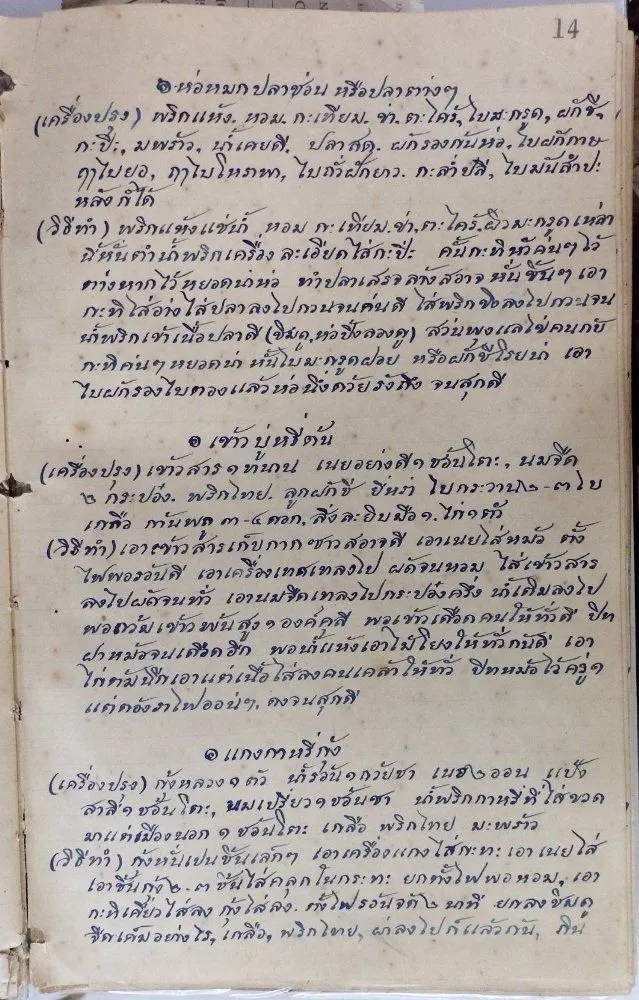 14
๑ ห่อหมกปลาช่อน หรือปลาต่างๆ
(เครื่องปรุง) พริกแห้ง. หอม. กะเทียม. ข่า. ตะไคร้, ใบมะกรูด, ผักชี,
กะปิ, มพร้าว, น้ำเคยดี. ปลาสด. ผักรองก้นห่อ, ใบผักกาษ
ฤาใบยอ, ฤาใบโหรพา, ใบถั่วฝักยาว. กะล่ำปลี, ใบมันสำปะ
หลังก็ได้
(วิธีทำ) พริกแห้งแช่น้ำ หอม กะเทียม. ข่า, ตะไคร้, ผิวมะกรูด เหล่า
นี้หั่นตำน้ำพริกเครื่อง ละเอียดใส่กะปิ คั้นกะทิหัวค่นๆ ไว้
ต่างหากไว้หยอดน่าห่อ ทำปลาเสรจล้างสอาจ หั่นชิ้นๆ เอา
กะทิใส่อ่างใส่ปลาลงไปกวนจนค่นดี ใส่พริกขิงลงไปกวนจน
น้ำพริกเข้าเนื้อปลาดี (ชิมดู, ห่อปิ้งลองดู) ส่วน แลไข่คนกับ
กะทิค่นๆ หยอดน่า หั่นใบมะกรูดฝอย หรือผักชีโรยน่า เอา
ใบผักรองใบตองแล้วห่อ นึ่งด้วยรังถึง จนสุกดี
๑ เข้าบูหรี่ดัน
(เครื่องปรุง) เข้าสาร ๑ ทนาน เนยอย่างดี ๑ ช้อนโตะ, นมจืด
๒ กระป๋อง. พริกไทย. ลูกผักชี ยี่หร่า ใบกระวาน ๒-๓ ใบ
เกลือ กานพลู ๓-๔ ดอก, สิ่งละยิบมือ ๑. ไก่ ๑ ตัว
(วิธีทำ) เอาเข้าสารเก็บกากซาวสอาจดี เอาเนยใส่หม้อ ตั้ง
ไฟพอร้อนดี เอาเครื่องเทศเทลงไป ผัดจนหอม ใส่เข้าสาร
ลงไปผัดจนทั่ว เอานมจืดเทลงไปกระป๋องครึ่ง น้ำเติมลงไป
พอท่วมเข้าพ้นสูง ๑ องคุลี พอเข้าเดือดคนให้ทั่วดี ปิท
ฝาหม้อจนเดือดอีก พอน้ำแห้งเอาไม้โยงให้ทั่วกันดี เอา
ไก่ต้มฉีกเอาแต่เนื้อใส่ลงคนเคล้าให้ทั่ว ปิทหม้อไว้ครู่ ๑
แต่ต้องราไฟออนๆ. ดงจนสุกดี
๑ แกงกาหรี่กุ้ง
(เครื่องปรุง) กุ้งหลวง ๑ ตัว น้ำร้อน ๑ ถ้วยชา เนย ๒ ออน แป้ง
สาลี ๑ ช้อนโตะ, นมเปรี้ยว ๑ ช้อนชา น้ำพริกกาหรี่ที่ใส่ขวด
มาแต่เมืองนอก ๑ ช้อนโตะ เกลือ พริกไทย มะพร้าว
(วิธีทำ) กุ้งหั่นเปนชิ้นเล็กๆ เอาเครื่องแกงใส่กะทะ เอาเนยใส่
เอาชิ้นกุ้ง ๒-๓ ชิ้นใส่คลุกในกระทะ ยกตั้งไฟพอหอม, เอา
กะทิเคี่ยวใส่ลง กุ้งใส่ลง. ตั้งไฟร้อนจัด ๒ นาที ยกลงชิมดู
จืดเค็มอย่างไร, เกลือ, พริกไทย, ลงไปก็แล้วกัน, กิน